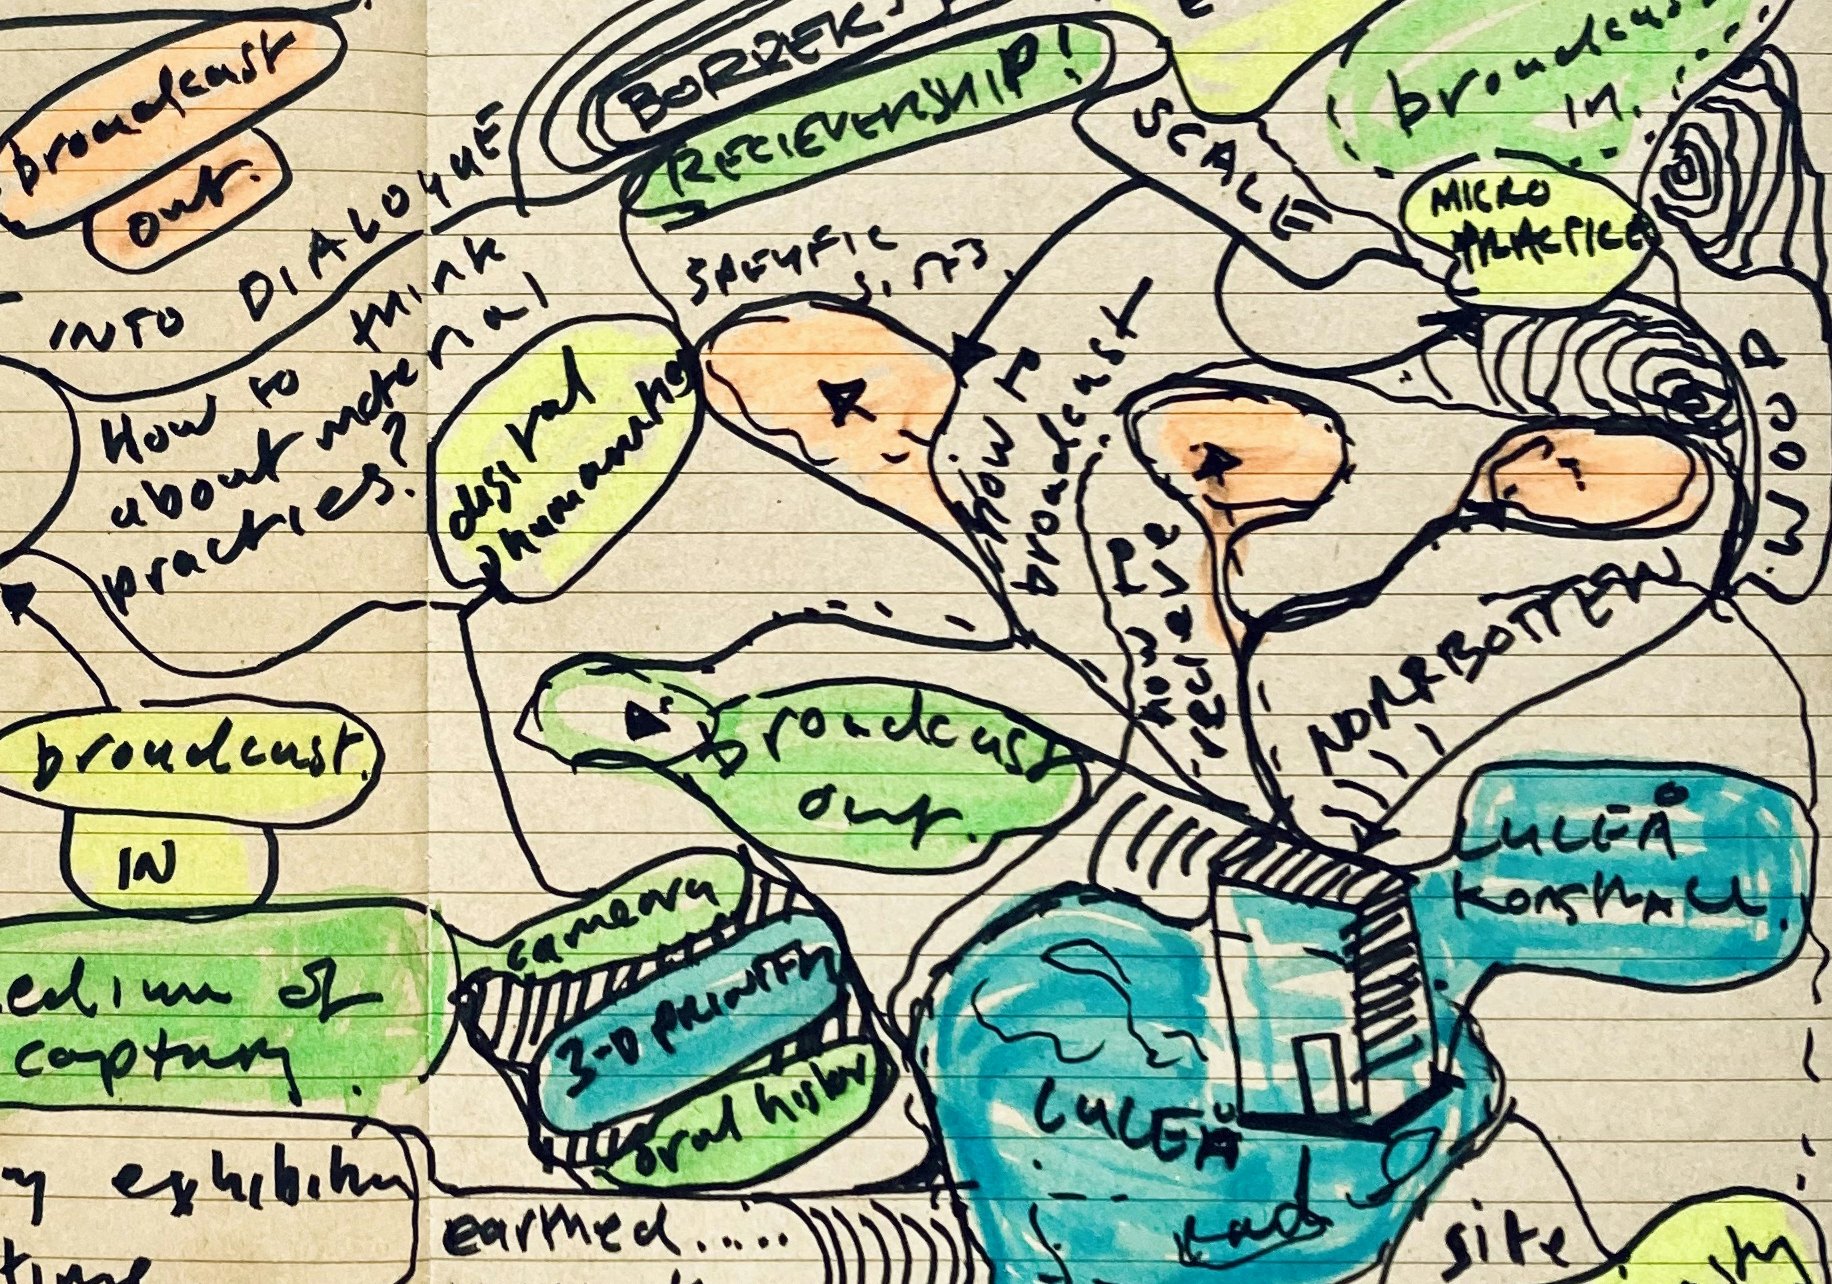 broadcast
out.
INTO DIALOGUE
How to think
about material
practices?
broadcast.
IN
edium of
captury
earthed.....
RECIEVERSHIP!
SPECIFIC
SITES.
digital
humanities
SCALE
broadcast
in.
MICRO
PRACTICE
ZOOM.
HOW TO
broadcast
HOW TO
recieve
NORRBOTTEN
broadcast
out.
camera
3-D PRINTER
oral history
LULEÅ
KONSTHALL.
LULEÅ
site